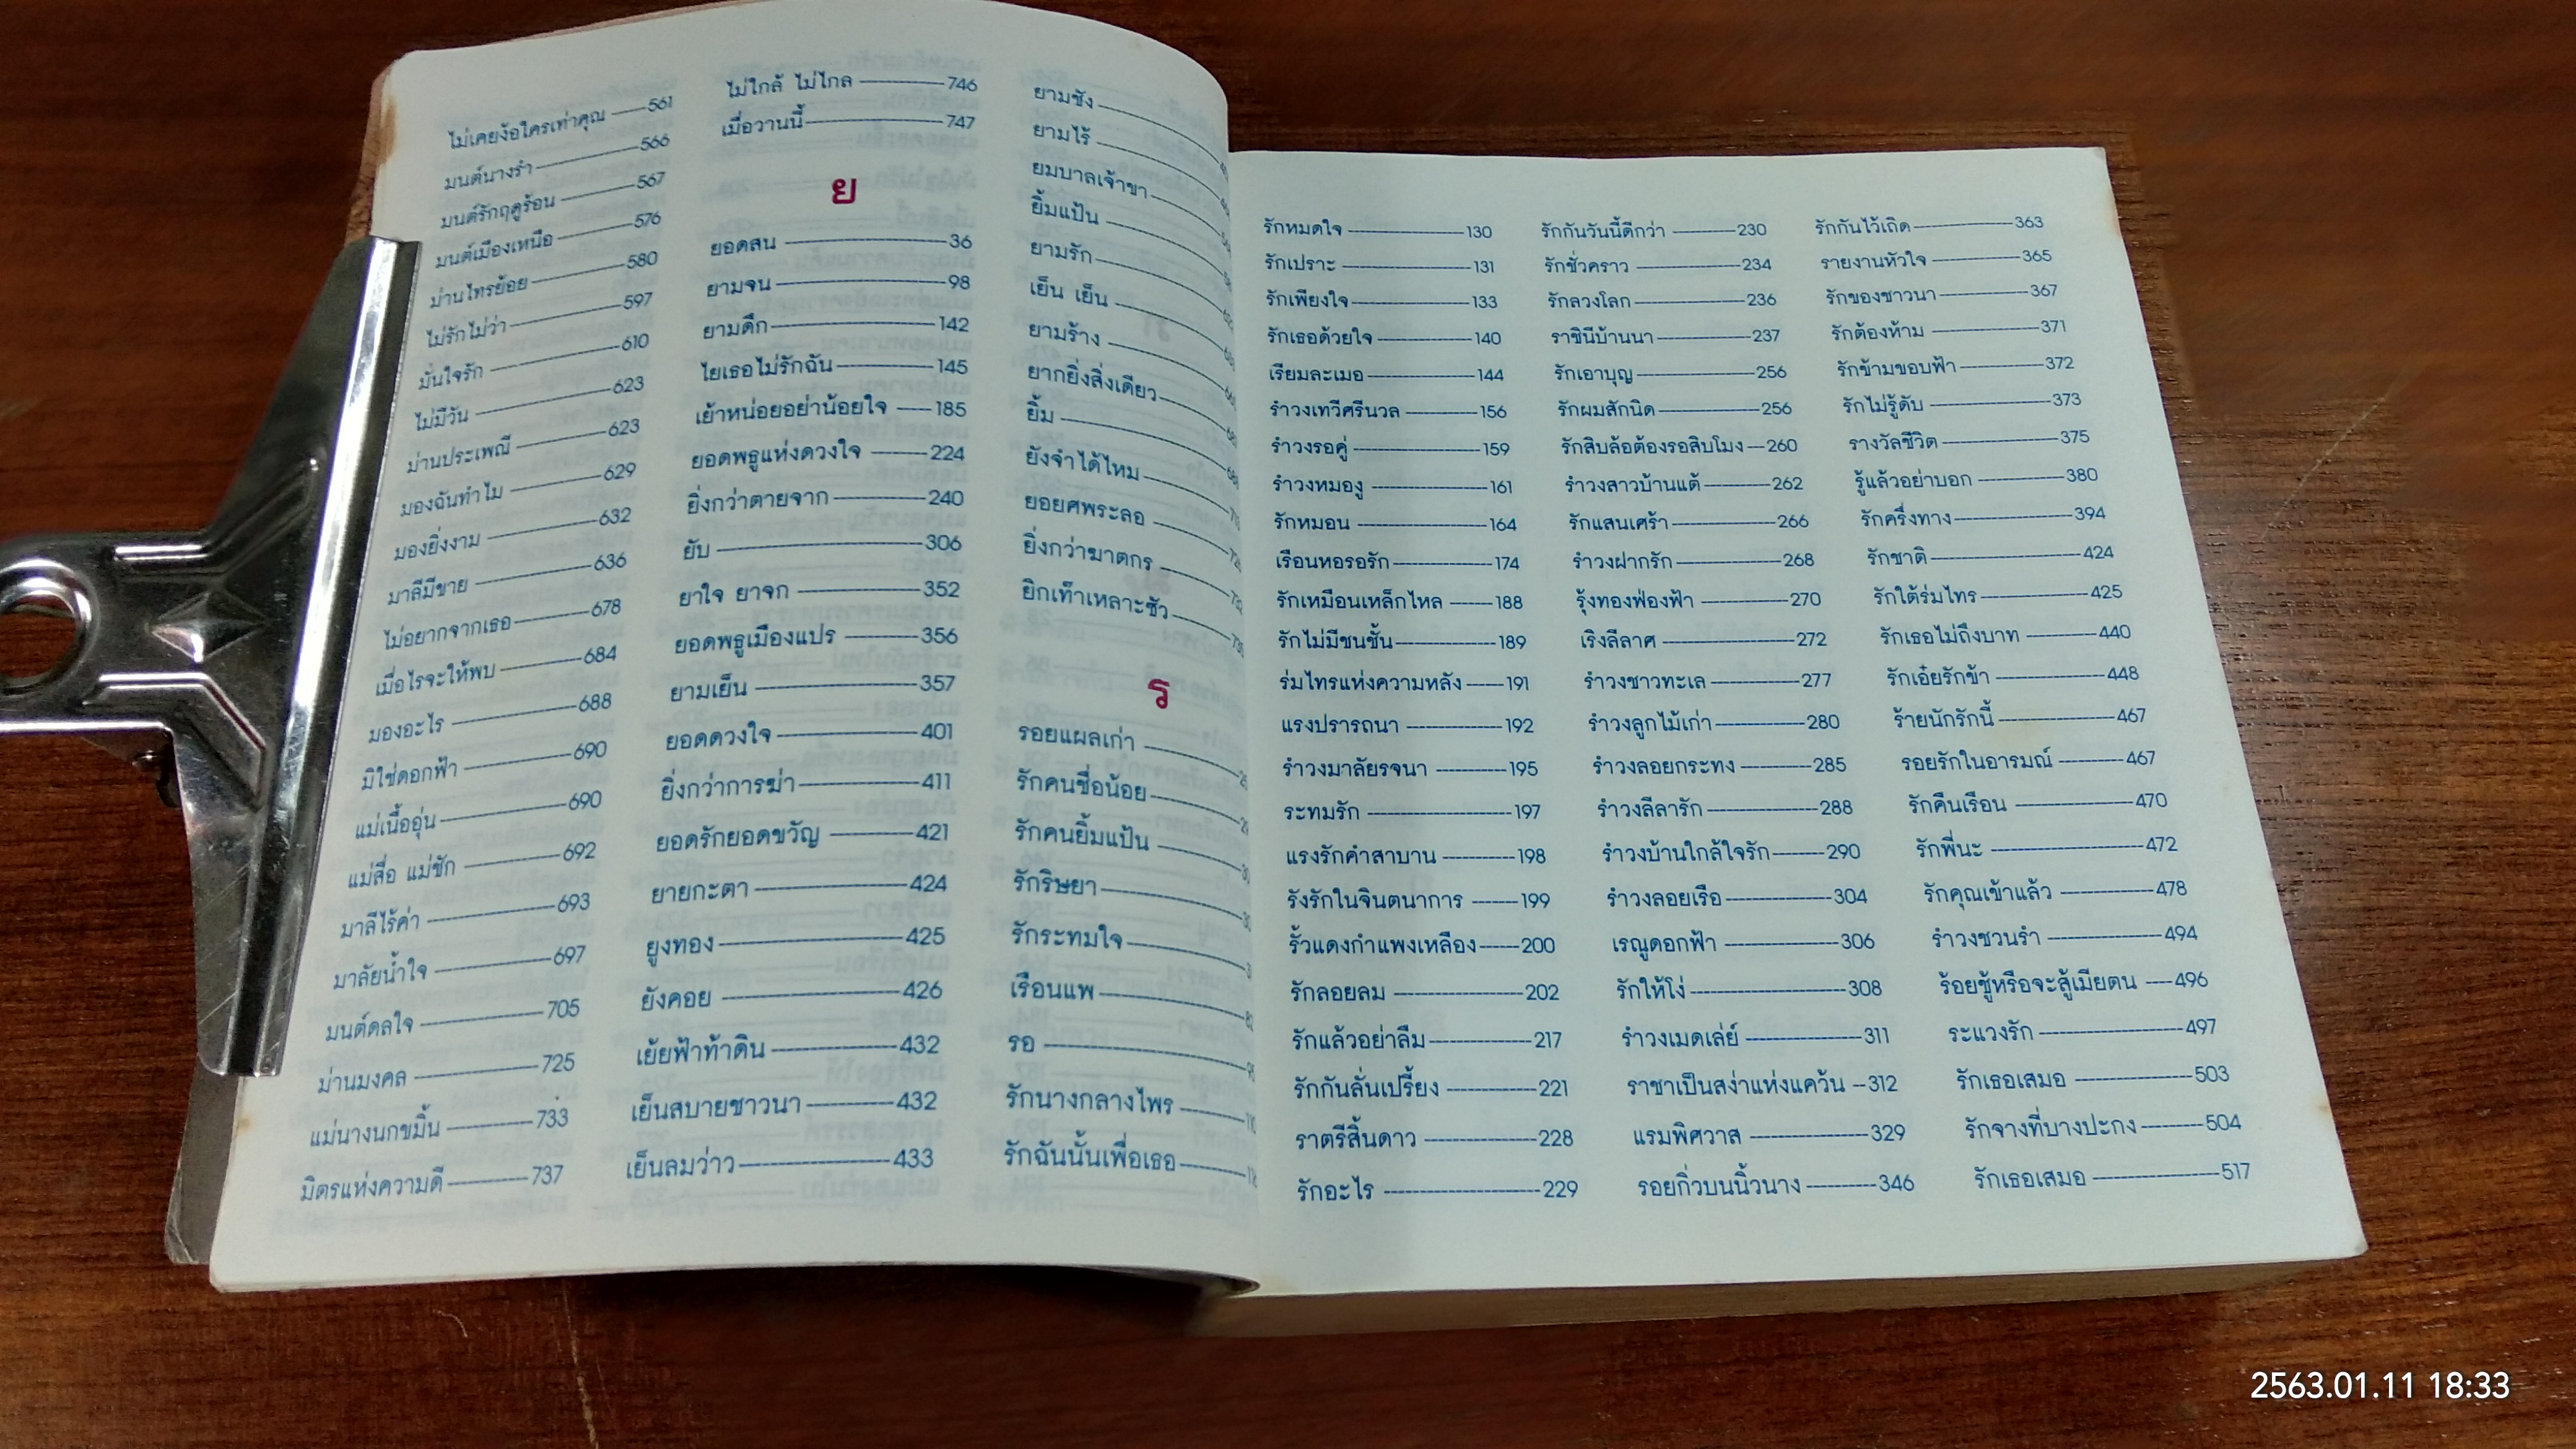 ไม่เคยง้อใครเท่าคุณ 561
มนต์นางรำ 566
มนต์รักฤดูร้อน 567
มนต์เมืองเหนือ 576
ม่านไทรย้อย 580
ไม่รักไม่ว่า 597
มั่นใจรัก 610
ไม่มีวัน 623
ม่านประเพณี 623
มองฉันทำไม 629
มองยิ่งงาม 632
มาลีมีขาย 636
ไม่อยากจากเธอ 678
เมื่อไรจะให้พบ 684
มองอะไร 688
มิใช่ดอกฟ้า 690
แม่เนื้ออุ่น 690
แม่สื่อ แม่ชัก 692
มาลีไร้ค่า 693
มาลัยน้ำใจ 697
มนต์ดลใจ 705
ม่านมงคล 725
แม่นางนกขมิ้น 733
มิตรแห่งความดี 737
ไม่ใกล้ ไม่ไกล 746
เมื่อวานนี้ 747
ย
ยอดสน 36
ยามจน 98
ยามดึก 142
ไยเธอไม่รักฉัน 145
เย้าหน่อยอย่าน้อยใจ 185
ยอดพธูแห่งดวงใจ 224
ยิ่งกว่าตายจาก 240
ยับ 306
ยาใจ ยาจก 352
ยอดพธูเมืองแปร 356
ยามเย็น 357
ยอดดวงใจ 401
ยิ่งกว่าการฆ่า 411
ยอดรักยอดขวัญ 421
ยายกะตา 424
ยูงทอง 425
ยังคอย 426
เย้ยฟ้าท้าดิน 432
เย็นสบายชาวนา 432
เย็นลมว่าว 433
ยามชัง
ยามไร้
ยมบาลเจ้าขา
ยิ้มแป้น
ยามรัก
เย็น เย็น
ยามร้าง
ยากยิ่งสิ่งเดียว
ยิ้ม
ยังจำได้ไหม
ยอยศพระลอ
ยิ่งกว่าฆาตกร
ยิกเท้าเหลาะชัว
ร
รอยแผลเก่า
รักคนชื่อน้อย
รักคนยิ้มแป้น
รักริษยา
รักระทมใจ
เรือนแพ
รอ
รักนางกลางไพร
รักฉันนั้นเพื่อเธอ
รักหมดใจ 130
รักเปราะ 131
รักเพียงใจ 133
รักเธอด้วยใจ 140
เรียมละเมอ 144
รำวงเทวีศรีนวล 156
รำวงรอคู่ 159
รำวงหมองู 161
รักหมอน 164
เรือนหอรอรัก 174
รักเหมือนเหล็กไหล 188
รักไม่มีชนชั้น 189
ร่มไทรแห่งความหลัง 191
แรงปรารถนา 192
รำวงมาลัยรจนา 195
ระทมรัก 197
แรงรักคำสาบาน 198
รังรักในจินตนาการ 199
รั้วแดงกำแพงเหลือง 200
รักลอยลม 202
รักแล้วอย่าลืม 217
รักกันลั่นเปรี้ยง 221
ราตรีสิ้นดาว 228
รักอะไร 229
รักกันวันนี้ดีกว่า 230
รักชั่วคราว 234
รักลวงโลก 236
ราชินีบ้านนา 237
รักเอาบุญ 256
รักผมสักนิด 256
รักสิบล้อต้องรอสิบโมง 260
รำวงสาวบ้านแต้ 262
รักแสนเศร้า 266
รำวงฝากรัก 268
รุ้งทองฟ่องฟ้า 270
เริงลีลาศ 272
รำวงชาวทะเล 277
รำวงลูกไม้เก่า 280
รำวงลอยกระทง 285
รำวงลีลารัก 288
รำวงบ้านใกล้ใจรัก 290
รำวงลอยเรือ 304
เรณูดอกฟ้า 306
รักให้โง่ 308
รำวงเมดเล่ย์ 311
ราชาเป็นสง่าแห่งแคว้น 312
แรมพิศวาส 329
รอยกิ่วบนนิ้วนาง 346
รักกันไว้เถิด 363
รายงานหัวใจ 365
รักของชาวนา 367
รักต้องห้าม 371
รักข้ามขอบฟ้า 372
รักไม่รู้ดับ 373
รางวัลชีวิต 375
รู้แล้วอย่าบอก 380
รักครึ่งทาง 394
รักชาติ 424
รักใต้ร่มไทร 425
รักเธอไม่ถึงบาท 440
รักเอ๋ยรักข้า 448
ร้ายนักรักนี้ 467
รอยรักในอารมณ์ 467
รักคืนเรือน 470
รักพี่นะ 472
รักคุณเข้าแล้ว 478
รำวงชวนรำ 494
ร้อยชู้หรือจะสู้เมียตน 496
ระแวงรัก 497
รักเธอเสมอ 503
รักจางที่บางปะกง 504
รักเธอเสมอ 517
2563.01.11 18:33